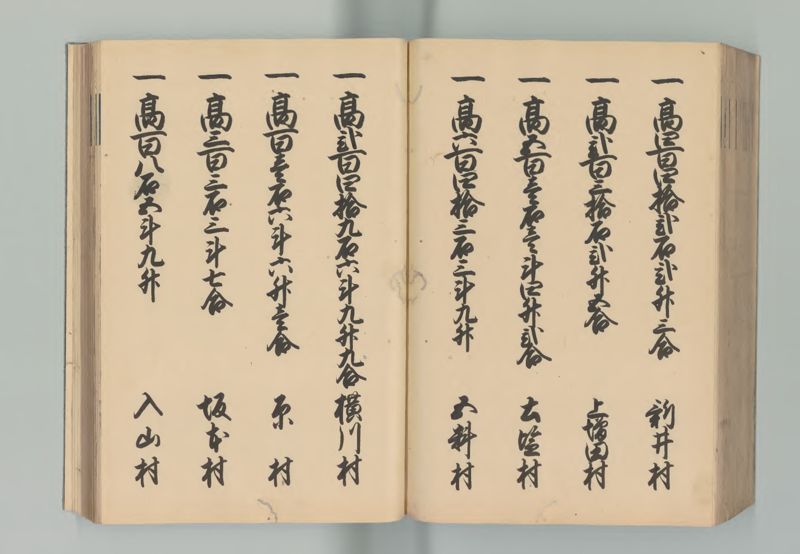 一高四百四拾弐石弐升三合 新井村
一高弐百三拾石弐升五合 上増田村
一高五百壱石壱斗四升弐合 土塩村
一高六百四拾三石三斗九升 五料村
一高弐百四拾九石六斗九升九合 横川村
一高百壱石六斗六升壱合 原村
一高三百三石三斗七合 坂本村
一高百八石五斗九升 入山村